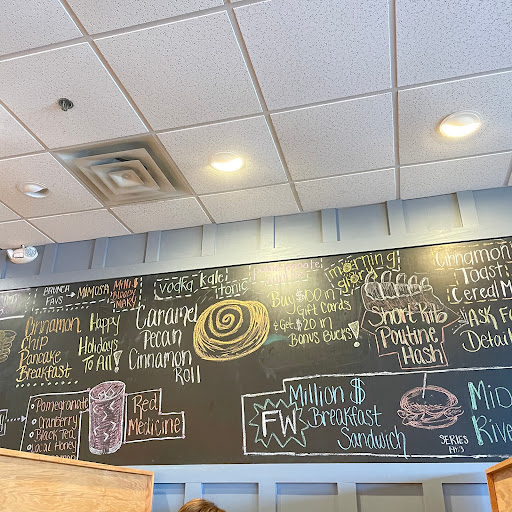 BRUNCH
FAVS
MIMOSA
MINI
BLOODY
MARY
Vodka Kale Tonic
morning
glory
Cinnamon
Toast
Cereal
Cinnamon
Chip
Pancake
Breakfast
Happy
Holidays
To All!
Caramel
Pecan
Cinnamon
Roll
Buy $100 in
Gift Cards
& Get $20 in
Bonus Bucks!
Short Rib
Poutine
Hash
ASK F
Detail
Pomegranate
Cranberry
Black Tea
Local Honey
Red
Medicine
FW
Million $
Breakfast
Sandwich
SERIES
FAVS
Rive